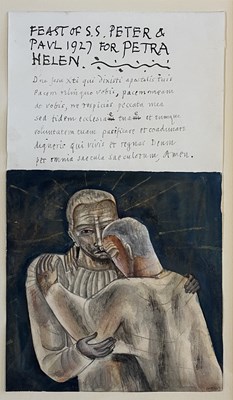 FEAST OF S.S. PETER &
PAVL 1927 FOR PETRA
HELEN.
Dne Jesu xti qui dixisti apostolis tuis
Pacem relinquo vobis, pacem meam
do vobis, ne respicias peccata mea
sed fidem ecclesiae tuae et eamque
voluntatem tuam pacificare et coadunare
digneris: qui vivis et regnas Deus
per omnia saecula saeculorum, Amen.